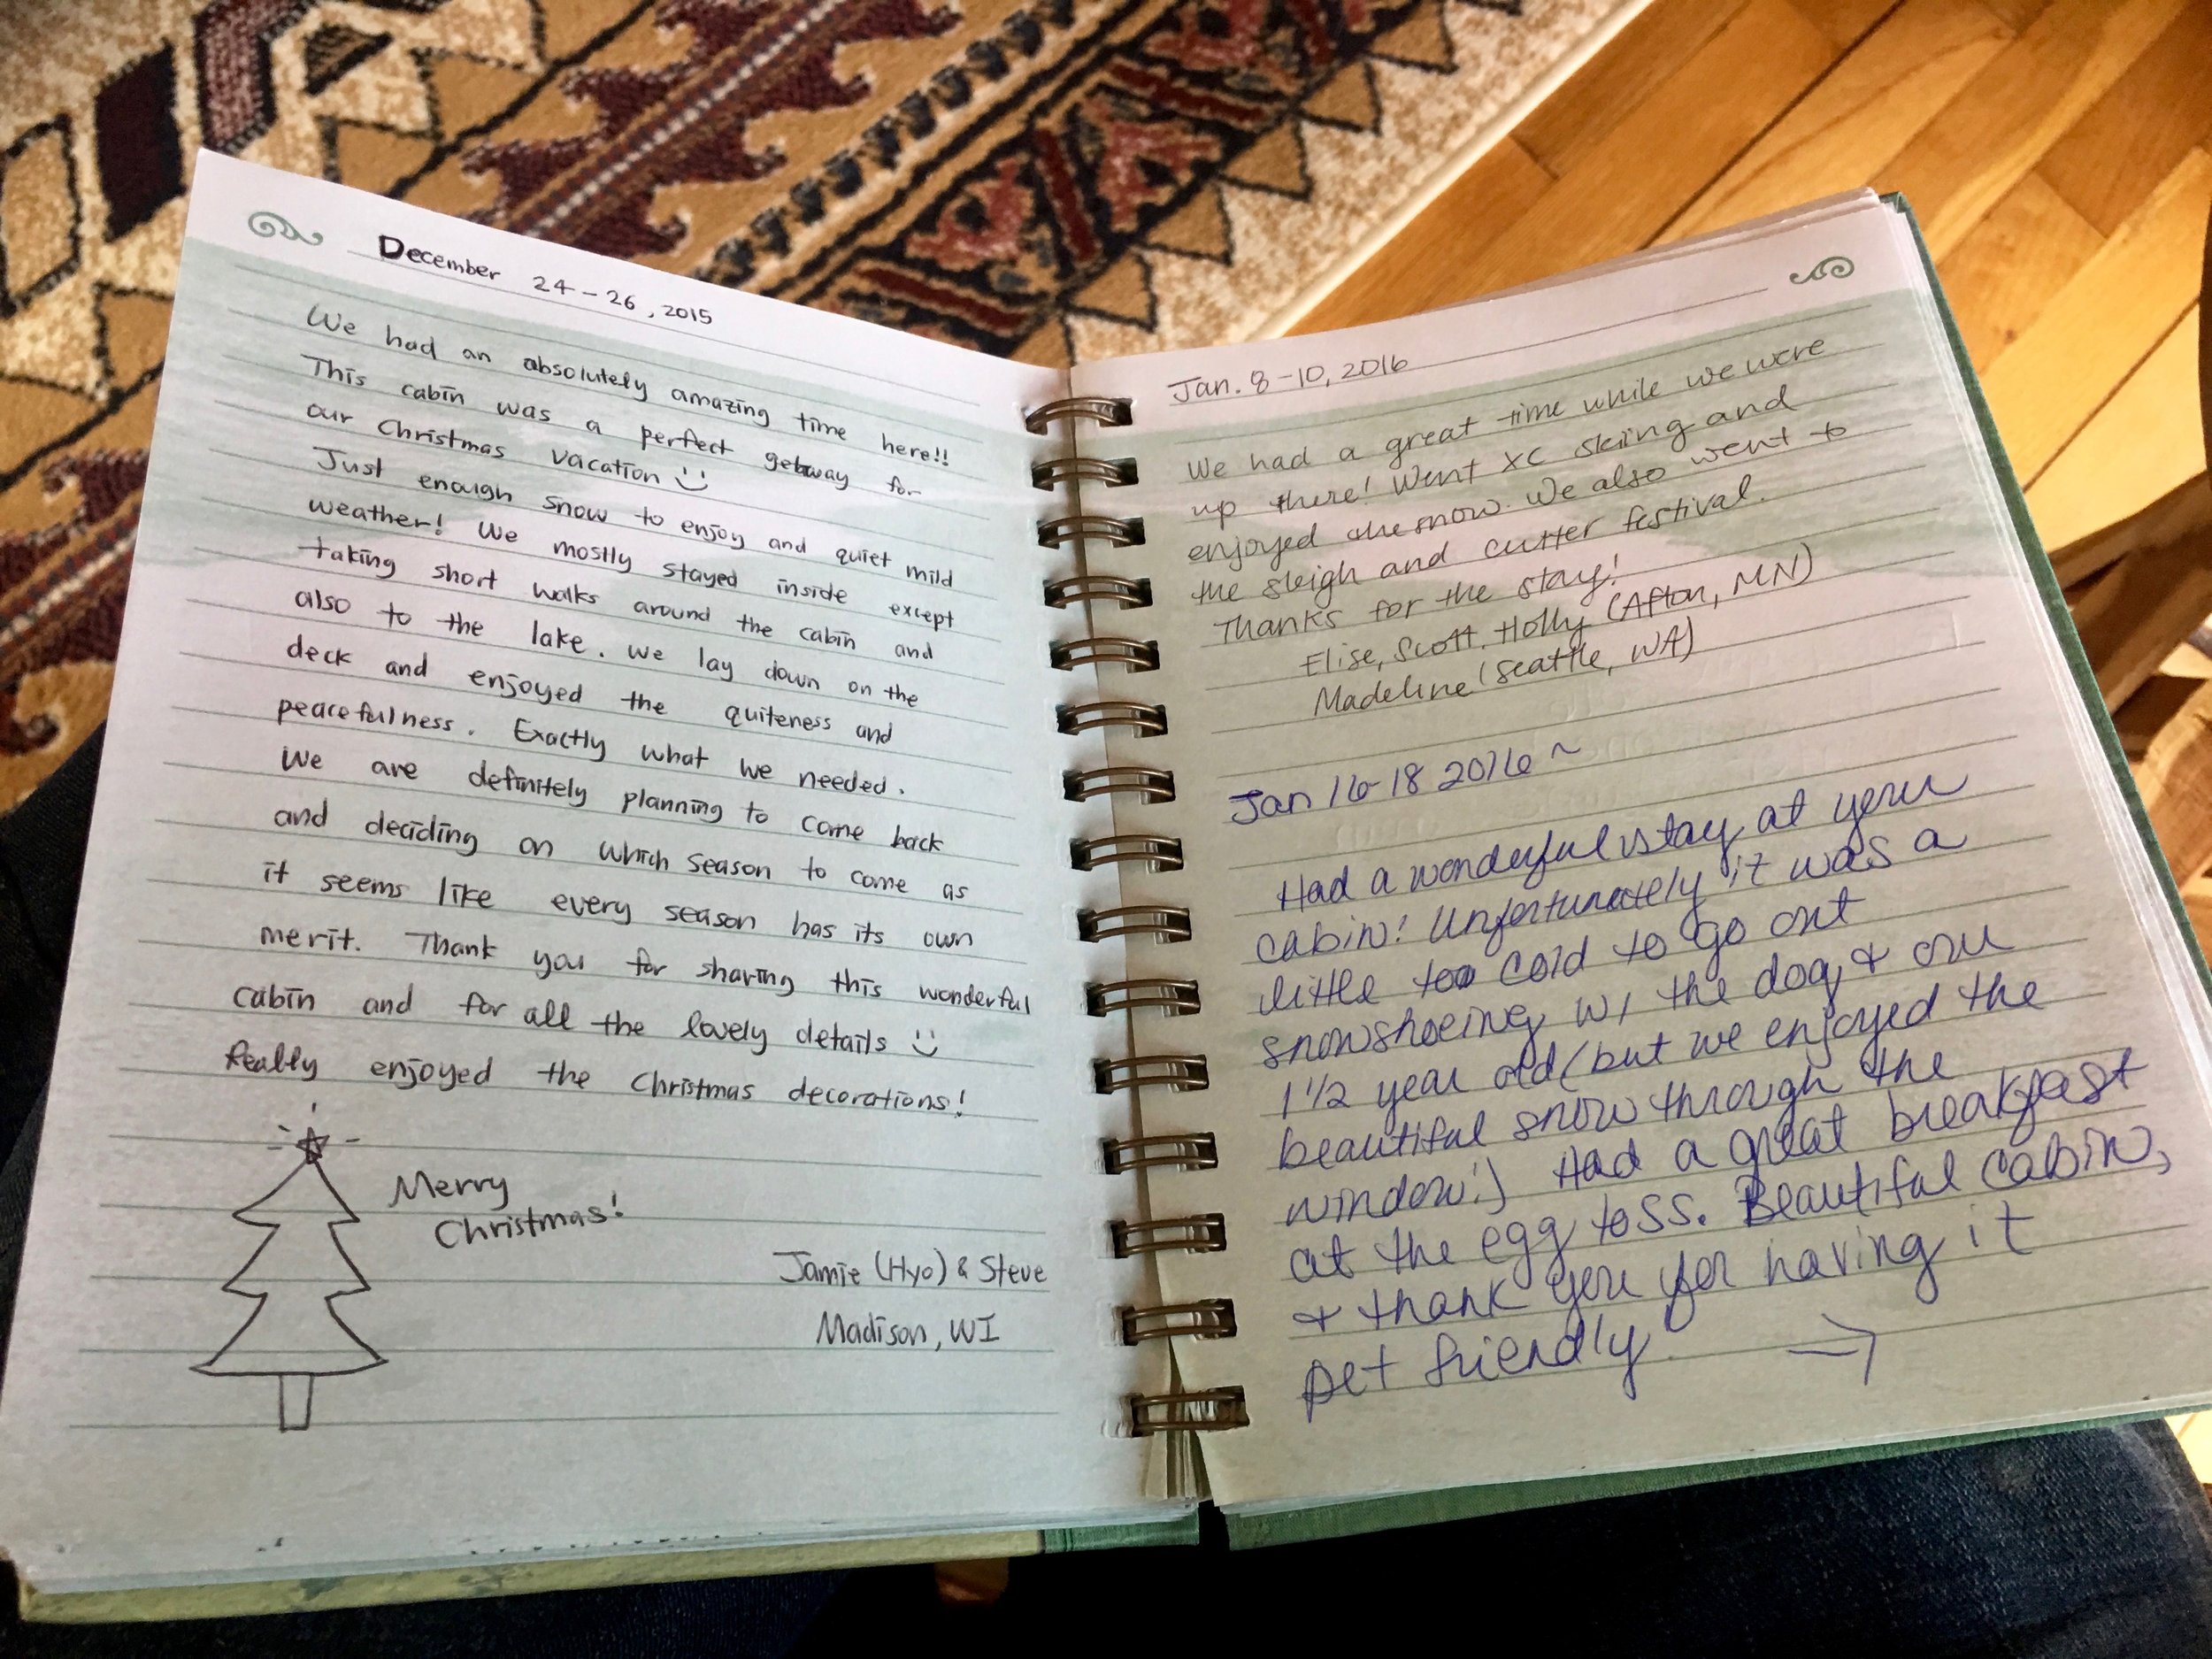 December 24-26, 2015
We had an absolutely amazing time here!!
This cabin was a perfect getaway for
our Christmas vacation
Just enough snow to enjoy and quiet mild
weather! We mostly stayed inside except
taking short walks around the cabin and
also to the lake. We lay down on the
deck and enjoyed the quiteness and
peacefulness. Exactly what we needed.
We are definitely planning to come back
and deciding on which season to come as
it seems like every season has its own
merit. Thank you for sharing this wonderful
cabin and for all the lovely details
Really enjoyed the Christmas decorations!
Merry
Christmas!
Jamie (Hyo) & Steve
Madison, WI
Jan. 8-10, 2016
We had a great time while we were
up there! Went XC skiing and
enjoyed the snow. We also went to
the sleigh and cutter festival.
Thanks for the stay!
Elise, Scott, Holly (Afton, MN)
Madeline (Seattle, WA)
Jan 16-18 2016 ~
Had a wonderful stay at your
cabin! Unfortunately it was a
little too cold to go out
snowshoeing w/ the dog & our
1 1/2 year old (but we enjoyed the
beautiful snow through the
window!) Had a great breakfast
at the egg toss. Beautiful cabin,
& thank you for having it
pet friendly →